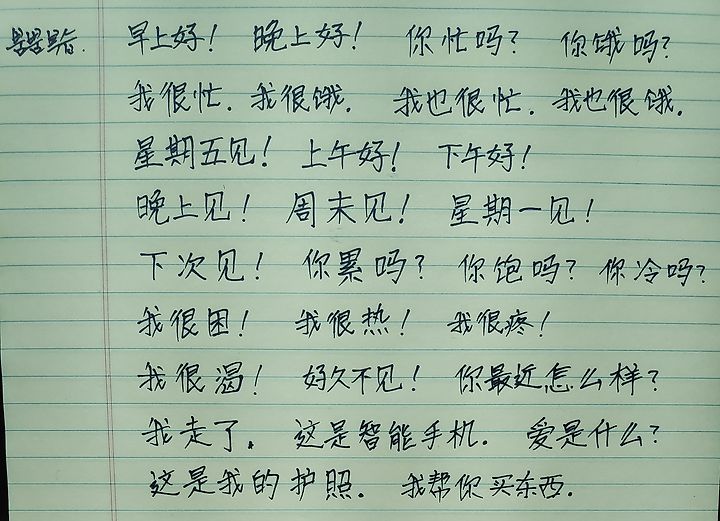 早上好！ 晚上好！ 你忙吗？ 你饿吗？
我很忙. 我很饿. 我也很忙. 我也很饿.
星期五见！ 上午好！ 下午好！
晚上见！ 周末见！ 星期一见！
下次见！ 你累吗？ 你饱吗？ 你冷吗？
我很困！ 我很热！ 我很疼！
我很渴！ 好久不见！ 你最近怎么样？
我走了. 这是智能手机. 爱是什么？
这是我的护照. 我帮你买东西.